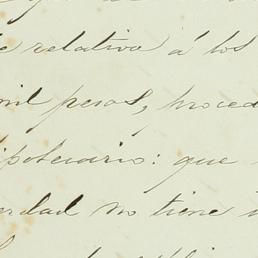 relativo á los
mil pesos, proced
ipotecario: que
erdad no tiene